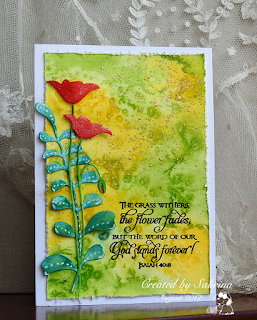 The grass withers,
the flower fades,
but the word of our
God stands forever!
Isaiah 40:8
Created by Sabrina
August 2017